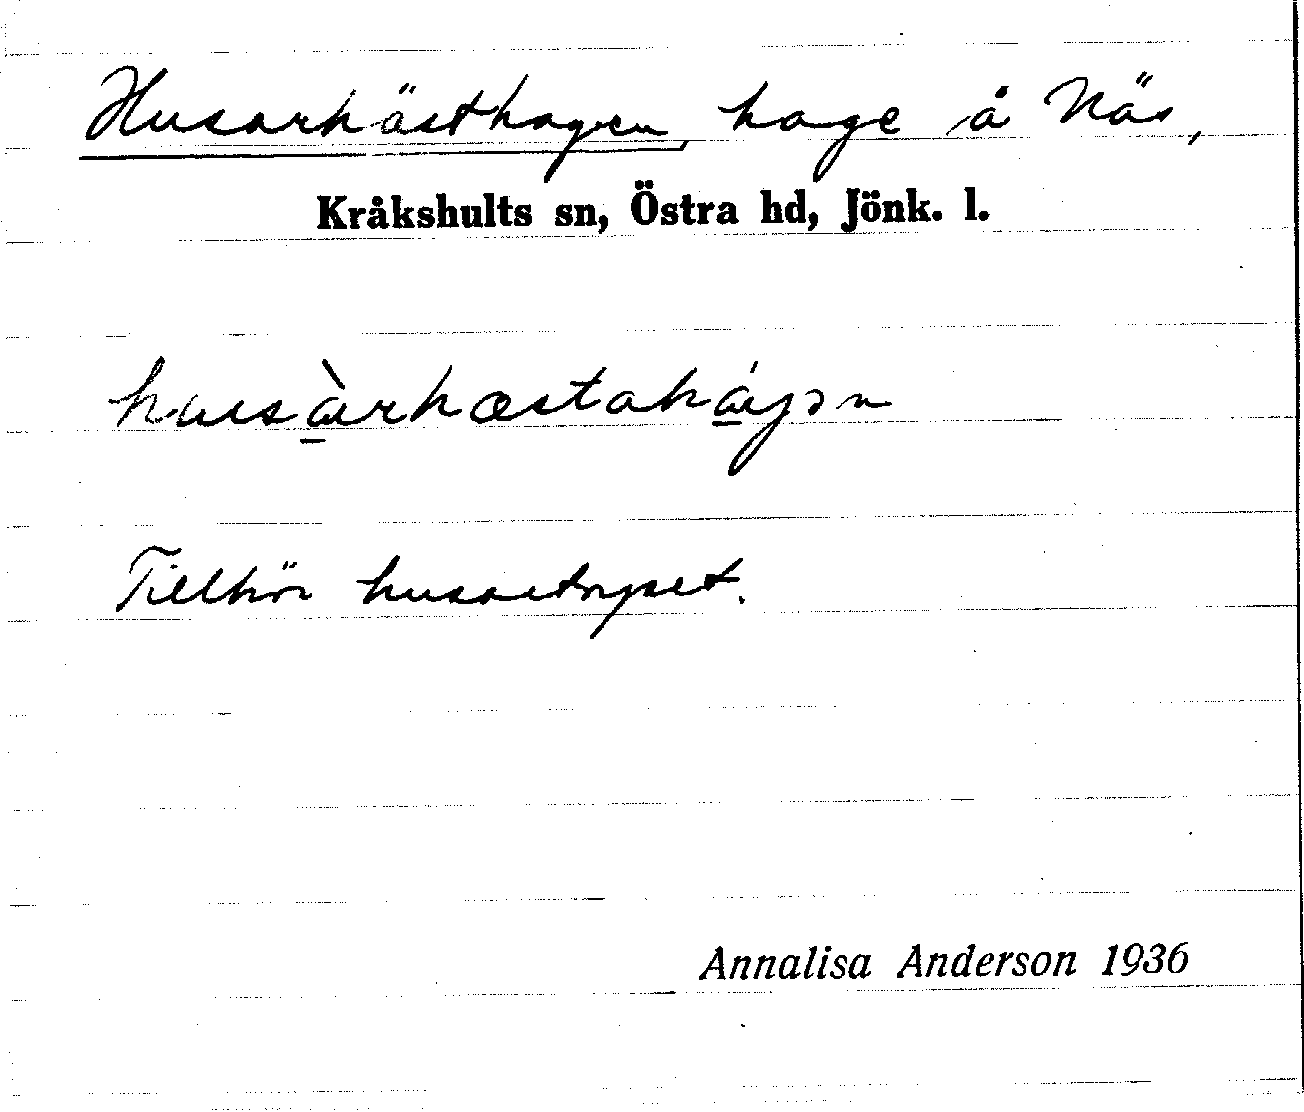 Husarhästhagen, hage å Näs,
Kråkshults sn, Östra hd, Jönk. l.
Tillhör husartorpet.
Annalisa Anderson 1936